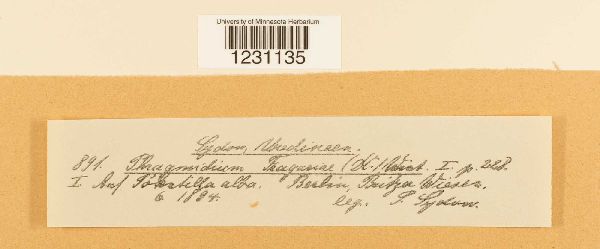 University of Minnesota Herbarium
1231135
Sydow, Uredineen.
891. Phragmidium Fragariae (DC.) Wint. I. p. 228.
I. Auf Potentilla alba. Berlin, Britzer Wiesen.
6 1884. leg. P. Sydow.